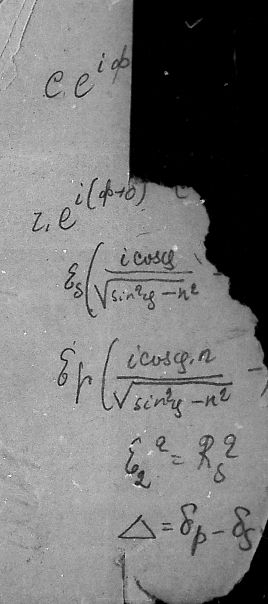 c. e^{iϕ}
r. e^{i(ϕ+δ)}
ℰ_s ( i cos φ / √(sin²φ − n²) −
ℰ_p ( i cos φ · n / √(sin²φ − n²) −
ℰ_2² = R_s²
Δ = δ_p − δ_s